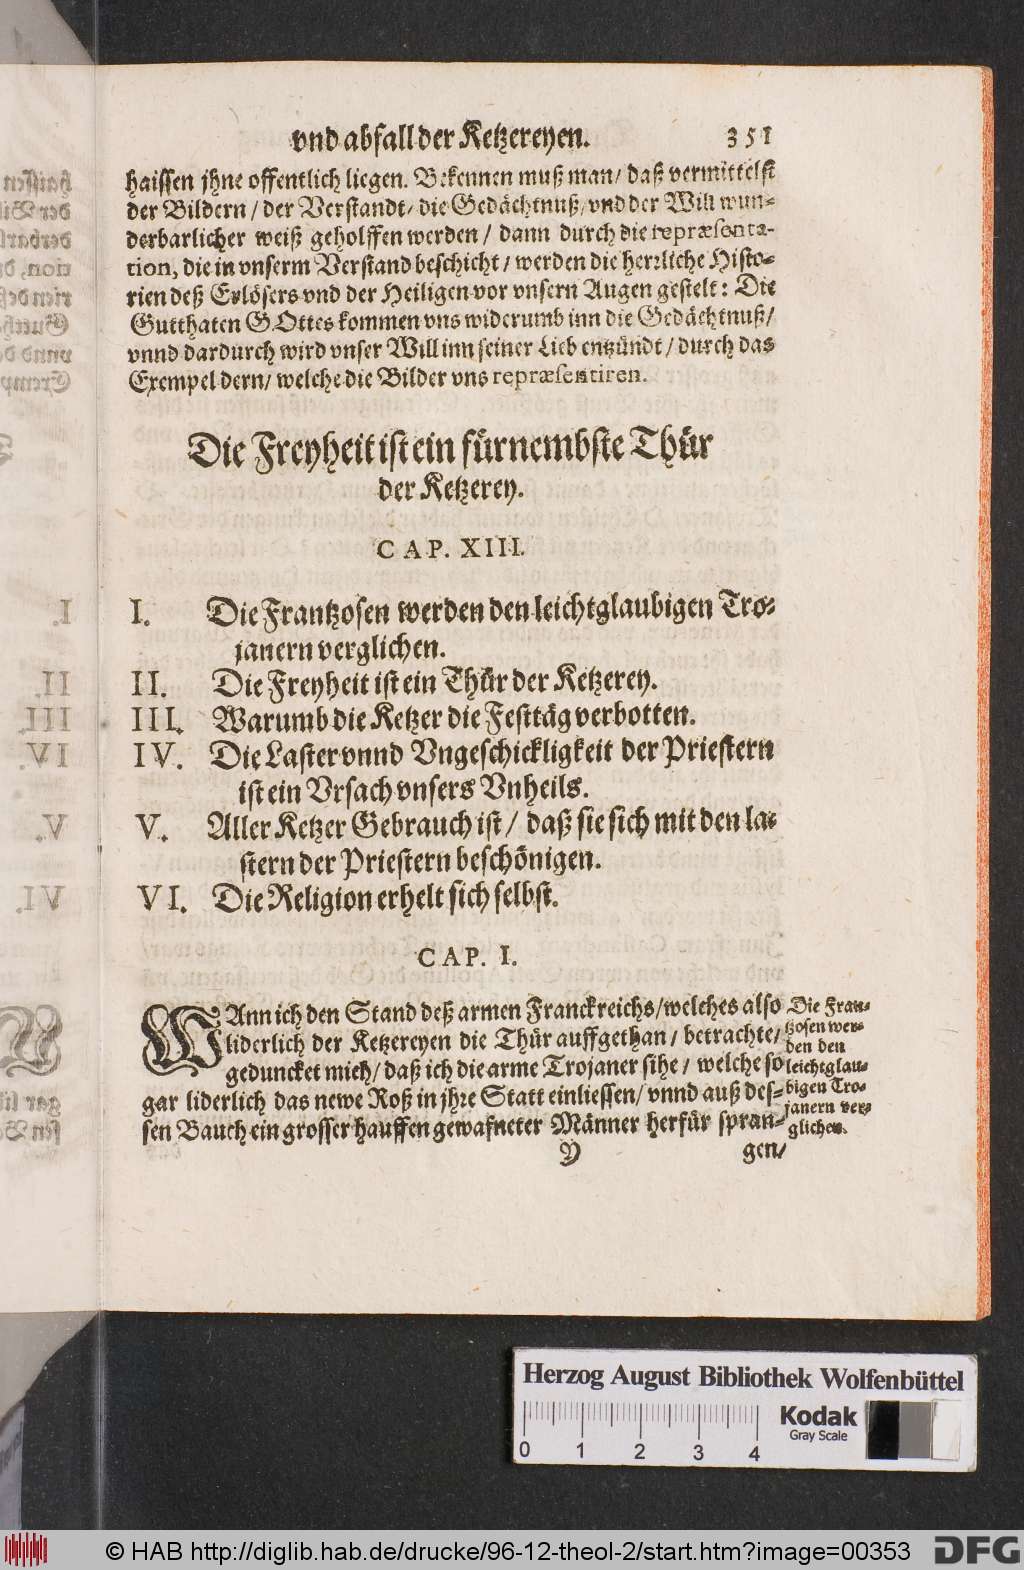 vnd abfall der Ketzereyen. 351
haissen jhne offentlich liegen. Bekennen muß man/ daß vermittelst
der Bildern/ der Verstandt/ die Gedächtnuß/ vnd der Will wun-
derbarlicher weiß geholffen werden/ dann durch die repræsenta-
tion, die in vnserm Verstand beschicht/ werden die herrliche Histo-
rien deß Erlösers vnd der Heiligen vor vnsern Augen gestelt: Die
Gutthaten GOttes kommen vns widerumb inn die Gedächtnuß/
vnnd dardurch wird vnser Will inn seiner Lieb entzündt/ durch das
Exempel dern/ welche die Bilder vns repræsentiren.
Die Freyheit ist ein fürnembste Thür
der Ketzerey.
CAP. XIII.
I. Die Frantzosen werden den leichtglaubigen Tro-
janern verglichen.
II. Die Freyheit ist ein Thür der Ketzerey.
III. Warumb die Ketzer die Festtäg verbotten.
IV. Die Laster vnnd Vngeschickligkeit der Priestern
ist ein Vrsach vnsers Vnheils.
V. Aller Ketzer Gebrauch ist/ daß sie sich mit den la-
stern der Priestern beschönigen.
VI. Die Religion erhelt sich selbst.
CAP. I.
WAnn ich den Stand deß armen Franckreichs/ welches also
liderlich der Ketzereyen die Thür auffgethan/ betrachte/
geduncket mich/ daß ich die arme Trojaner sihe/ welche so
gar liderlich das newe Roß in jhre Statt einliessen/ vnnd auß des-
sen Bauch ein grosser hauffen gewafneter Männer herfür spran-
Y gen/
Die Fran-
tzosen wer-
den den
leichtglau-
bigen Tro-
janern ver-
glichen.
Herzog August Bibliothek Wolfenbüttel
0 1 2 3 4
Kodak
Gray Scale
© HAB http://diglib.hab.de/drucke/96-12-theol-2/start.htm?image=00353
DFG